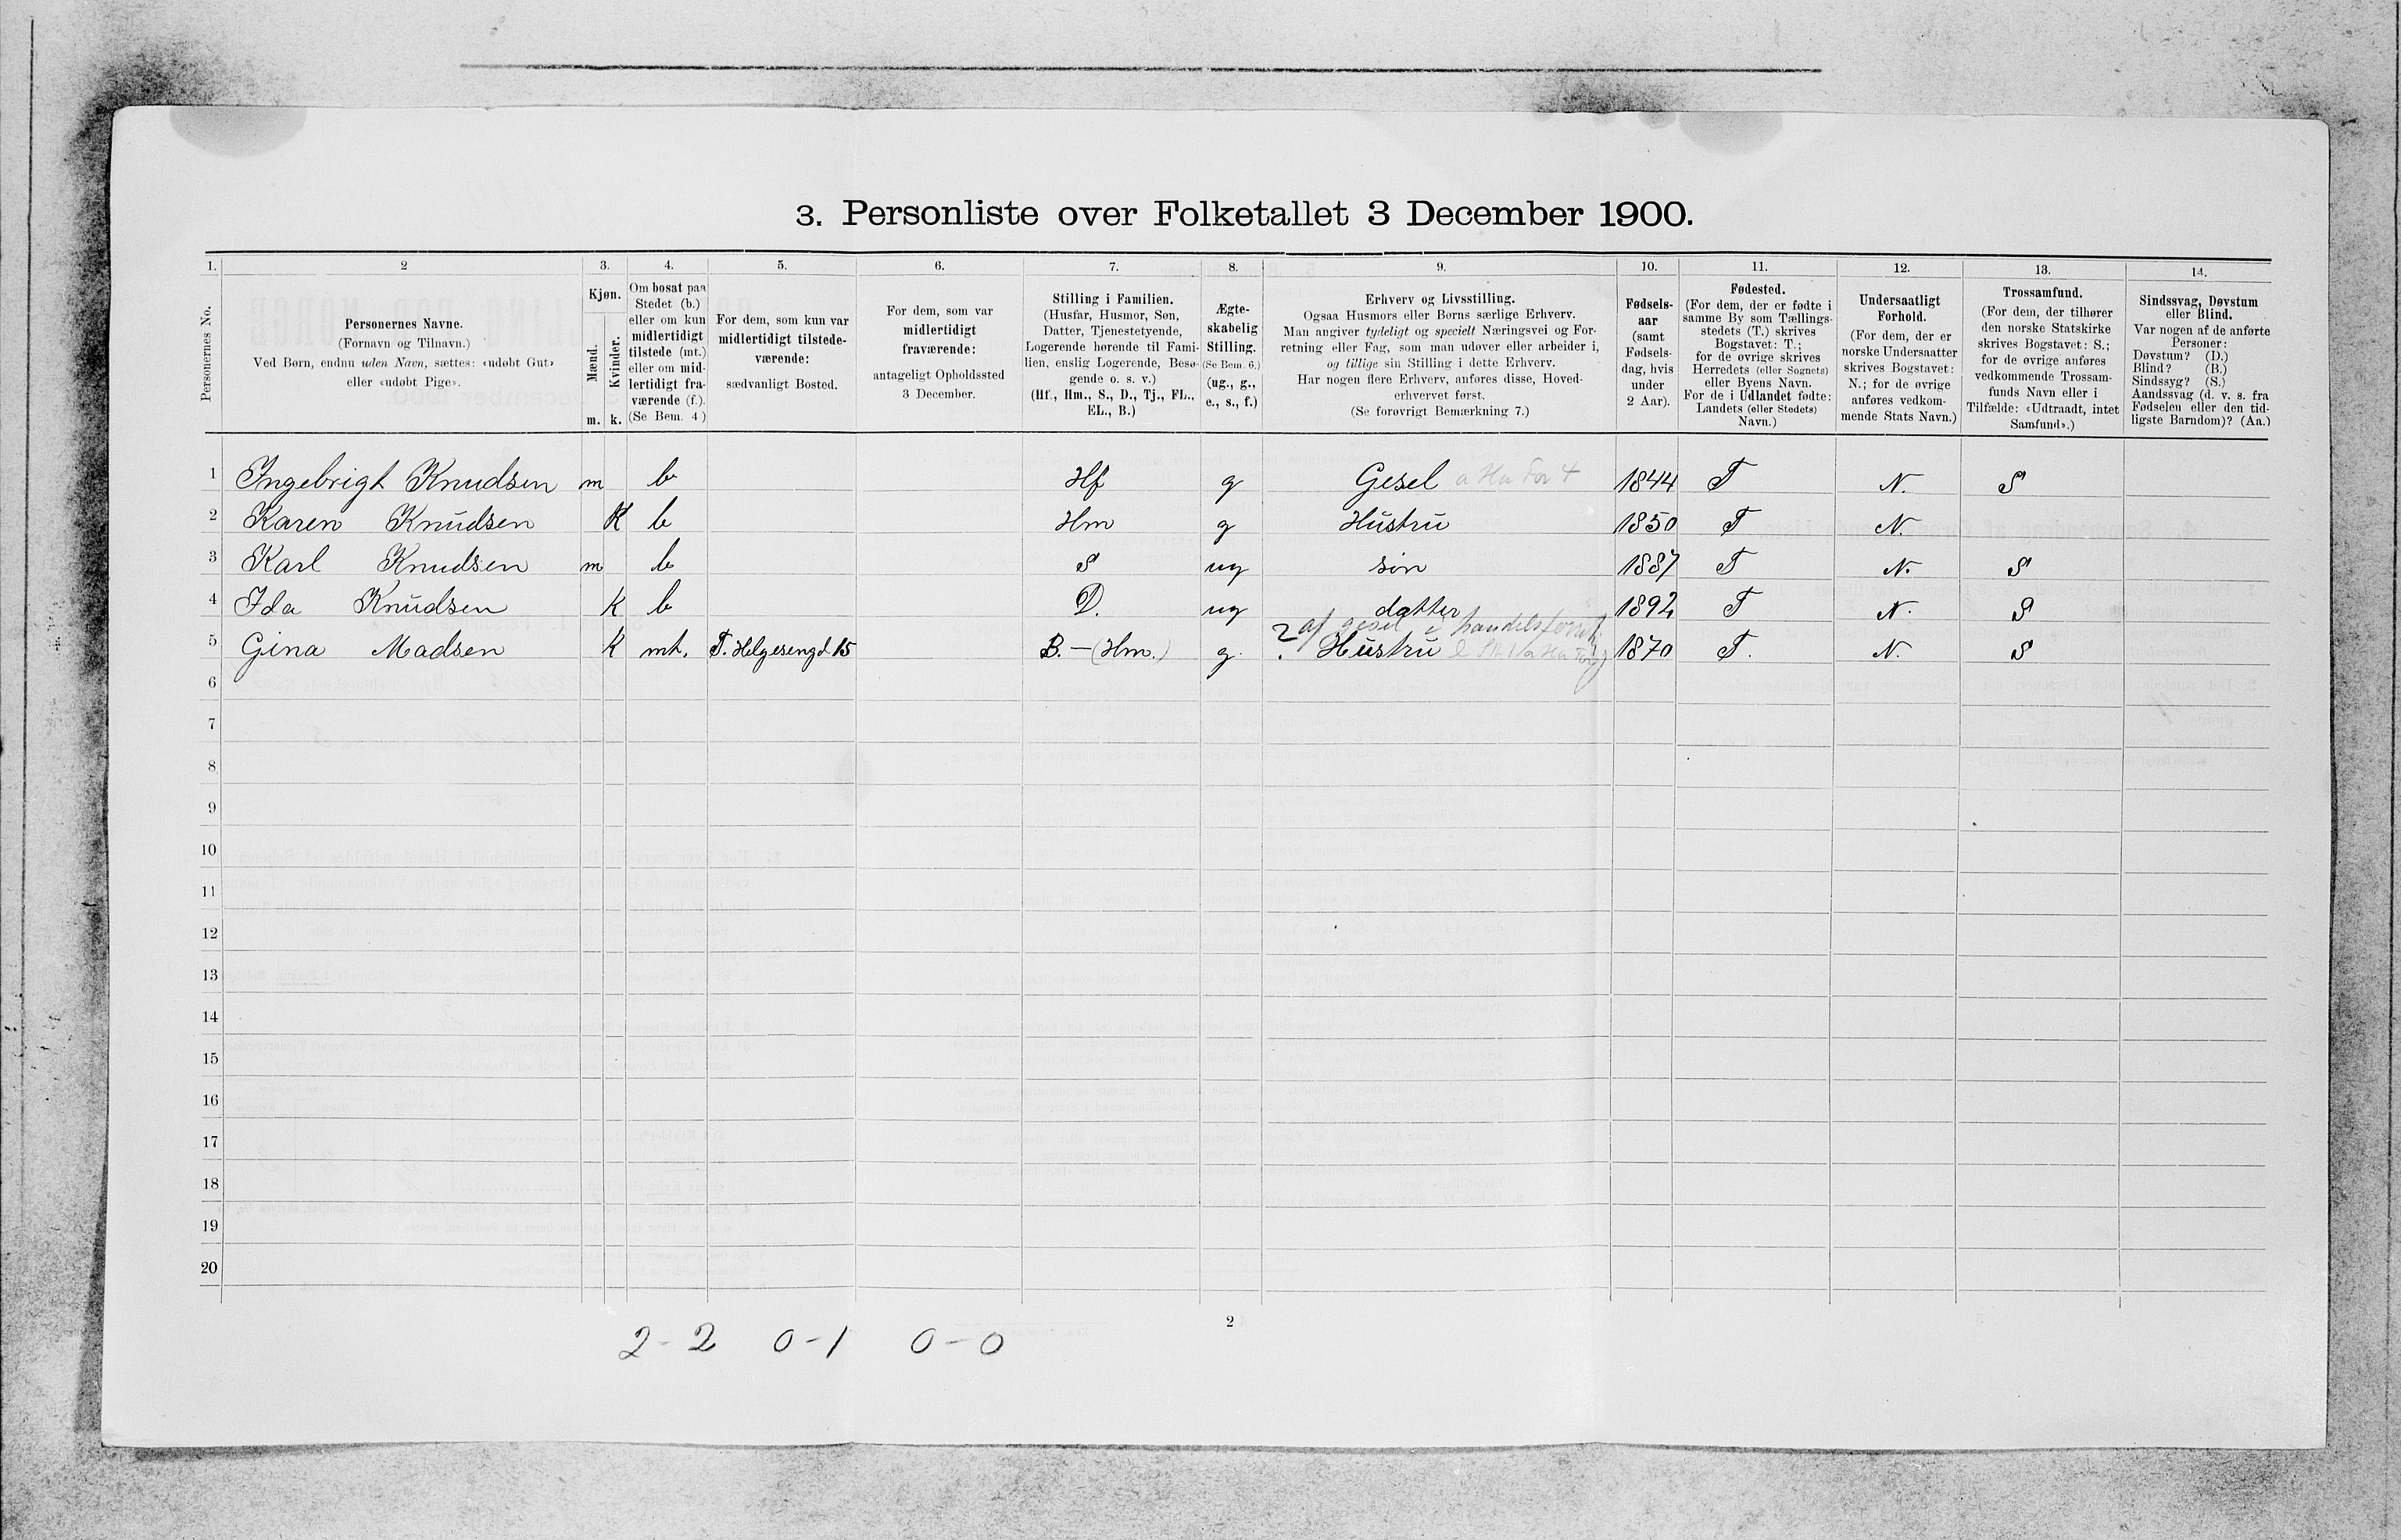 3. Personliste over Folketallet 3 December 1900.
1. 2 3. 4. 5. 6. 7. 8. 9. 10. 11. 12. 13. 14.
Personernes No.
Personernes Navne.
(Fornavn og Tilnavn.)
Ved Børn, endnu uden Navn, sættes: «udøbt Gut»
eller «udøbt Pige».
Kjøn.
Mænd. Kvinder.
m. k.
Om bosat paa
Stedet (b.)
eller om kun
midlertidigt
tilstede (mt.)
eller om mid-
lertidigt fra-
værende (f.).
(Se Bem. 4)
For dem, som kun var
midlertidigt tilstede-
værende:
sædvanligt Bosted.
For dem, som var
midlertidigt
fraværende:
antageligt Opholdssted
3 December.
Stilling i Familien.
(Husfar, Husmor, Søn,
Datter, Tjenestetyende,
Logerende hørende til Fami-
lien, enslig Logerende, Besø-
gende o. s. v.)
(Hf., Hm., S., D., Tj., FL.,
EL., B.)
Ægte-
skabelig
Stilling.
(Se Bem. 6.)
(ug., g.,
e., s., f.)
Erhverv og Livsstilling.
Ogsaa Husmors eller Børns særlige Erhverv.
Man angiver tydeligt og specielt Næringsvei og For-
retning eller Fag, som man udøver eller arbeider i,
og tillige sin Stilling i dette Erhverv.
Har nogen flere Erhverv, anføres disse, Hoved-
erhvervet først.
(Se forøvrigt Bemærkning 7.)
Fødsels-
aar
(samt
Fødsels-
dag, hvis
under
2 Aar).
Fødested.
(For dem, der er fødte i
samme By som Tællings-
stedets (T.) skrives
Bogstavet: T.;
for de øvrige skrives
Herredets (eller Sognets)
eller Byens Navn.
For de i Udlandet fødte:
Landets (eller Stedets)
Navn.)
Undersaatligt
Forhold.
(For dem, der er
norske Undersaatter
skrives Bogstavet:
N.; for de øvrige
anføres vedkom-
mende Stats Navn.)
Trossamfund.
(For dem, der tilhører
den norske Statskirke
skrives Bogstavet: S.;
for de øvrige anføres
vedkommende Trossam-
funds Navn eller i
Tilfælde: «Udtraadt, intet
Samfund».)
Sindssvag, Døvstum
eller Blind.
Var nogen af de anførte
Personer:
Døvstum? (D.)
Blind? (B.)
Sindssyg? (S.)
Aandssvag (d. v. s. fra
Fødselen eller den tid-
ligste Barndom)? (Aa.)
1 Ingebrigt Knudsen m b Hf g Gesel 1844 T N. S
2 Karen Knudsen K b Hm g Hustru 1850 T N.
3 Karl Knudsen m b S ug søn 1887 T N. S
4 Ida Knudsen K b D. ug datter 1892 T N. S
? af gesel i
5 Gina Madsen K mt. T. Helgesengd 15 B. – (Hm.) g. Hustru 1870 T. N. S
6
7
8
9
10
11
12
13
14
15
16
17
18
19
20
2
2-2 0-1 0-0